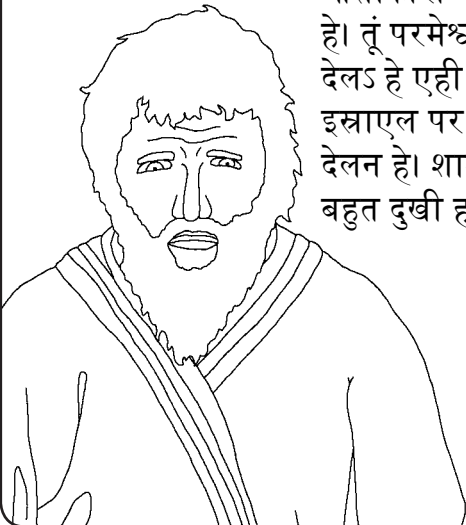 हे। तूं परमेश्व
देलऽ हे एही
इस्राएल पर
देलन हे। शा
बहुत दुखी ह